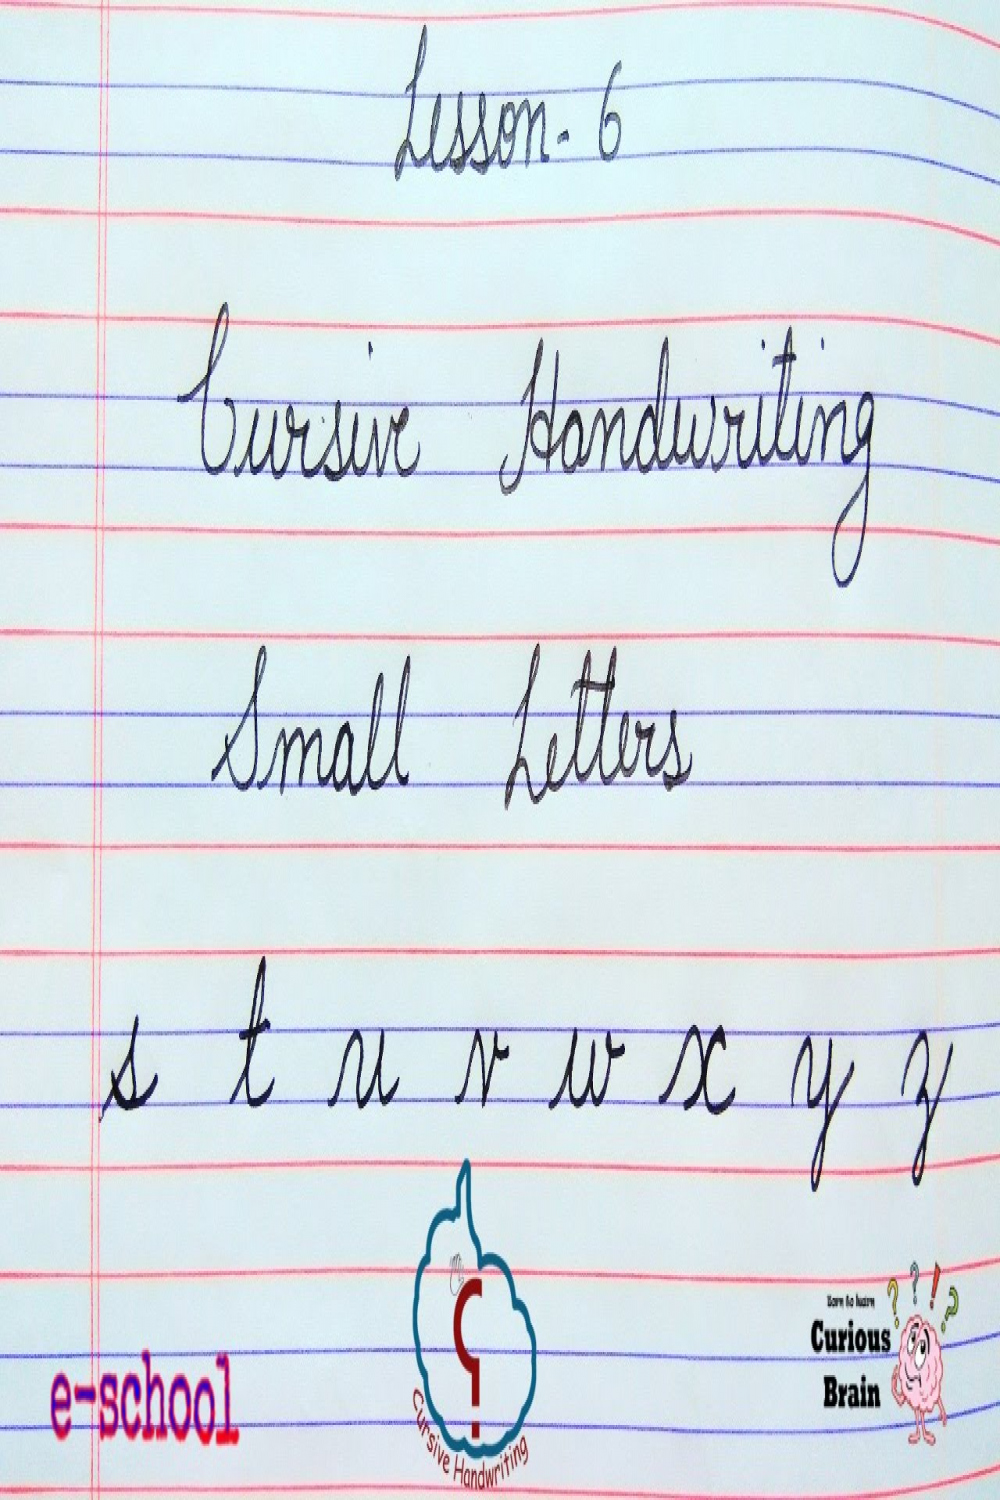 Lesson- 6
Cursive Handwriting
Small Letters
s t u v w x y z
Born to learn
Curious
Brain
e-school
Cursive Handwriting